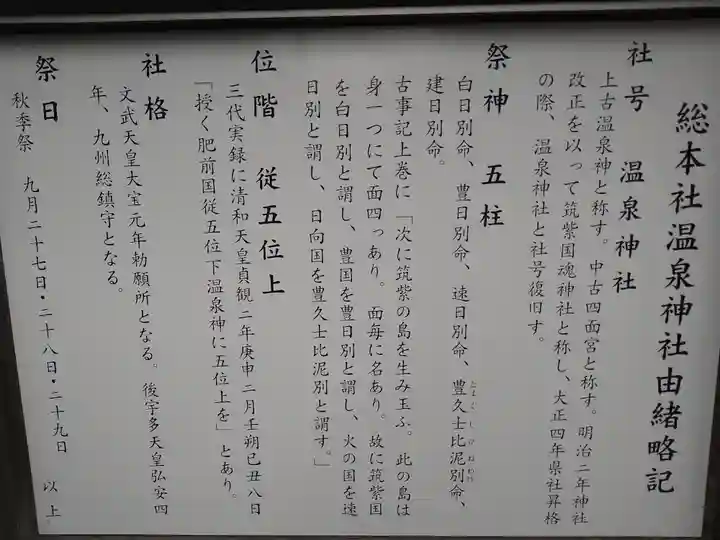 総本社温泉神社由緒略記
社号　温泉神社
上古温泉神と称す。中古四面宮と称す。明治二年神社
改正を以って筑紫国魂神社と称し、大正四年県社昇格
の際、温泉神社と社号復旧す。
祭神　五柱
白日別命、豊日別命、速日別命、豊久士比泥別命、
建日別命。
古事記上巻に「次に筑紫の島を生み玉ふ。此の島は
身一つにて面四っあり。面毎に名あり。故に筑紫国
を白日別と謂し、豊国を豊日別と謂し、火の国を速
日別と謂し、日向国を豊久士比泥別と謂す。」
位階　従五位上
三代実録に清和天皇貞観二年庚申二月壬朔已丑八日
「授く肥前国従五位下温泉神に五位上を」とあり。
社格
文武天皇大宝元年勅願所となる。後宇多天皇弘安四
年、九州総鎮守となる。
祭日
秋季祭　九月二十七日・二十八日・二十九日　以上